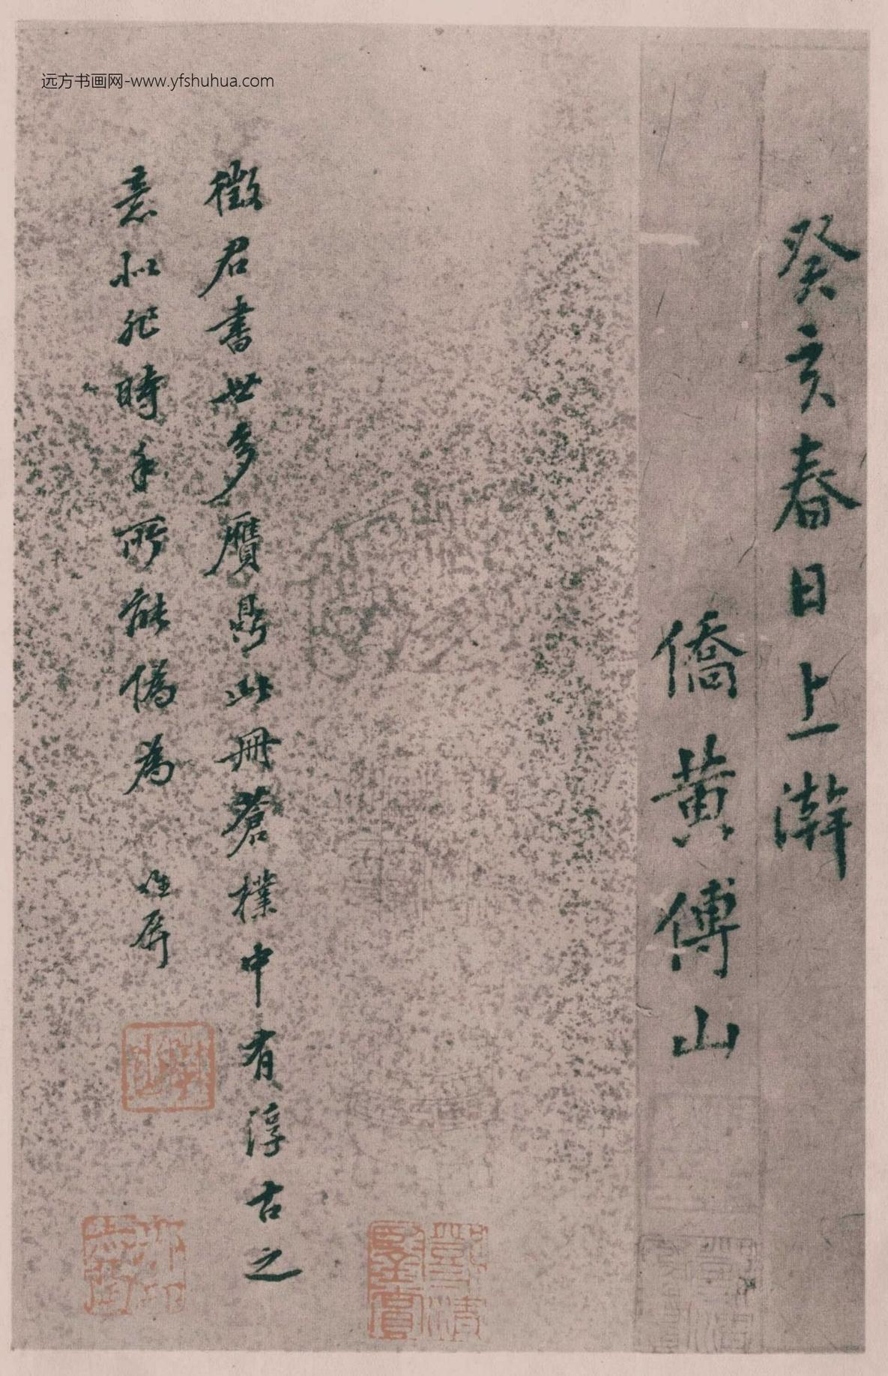 远方书画网-www.yfshuhua.com
癸亥春日上澣
僑黄傅山
徵君書世多贋鼎此冊蒼樸中有淳古之
意似非時手所能偽為